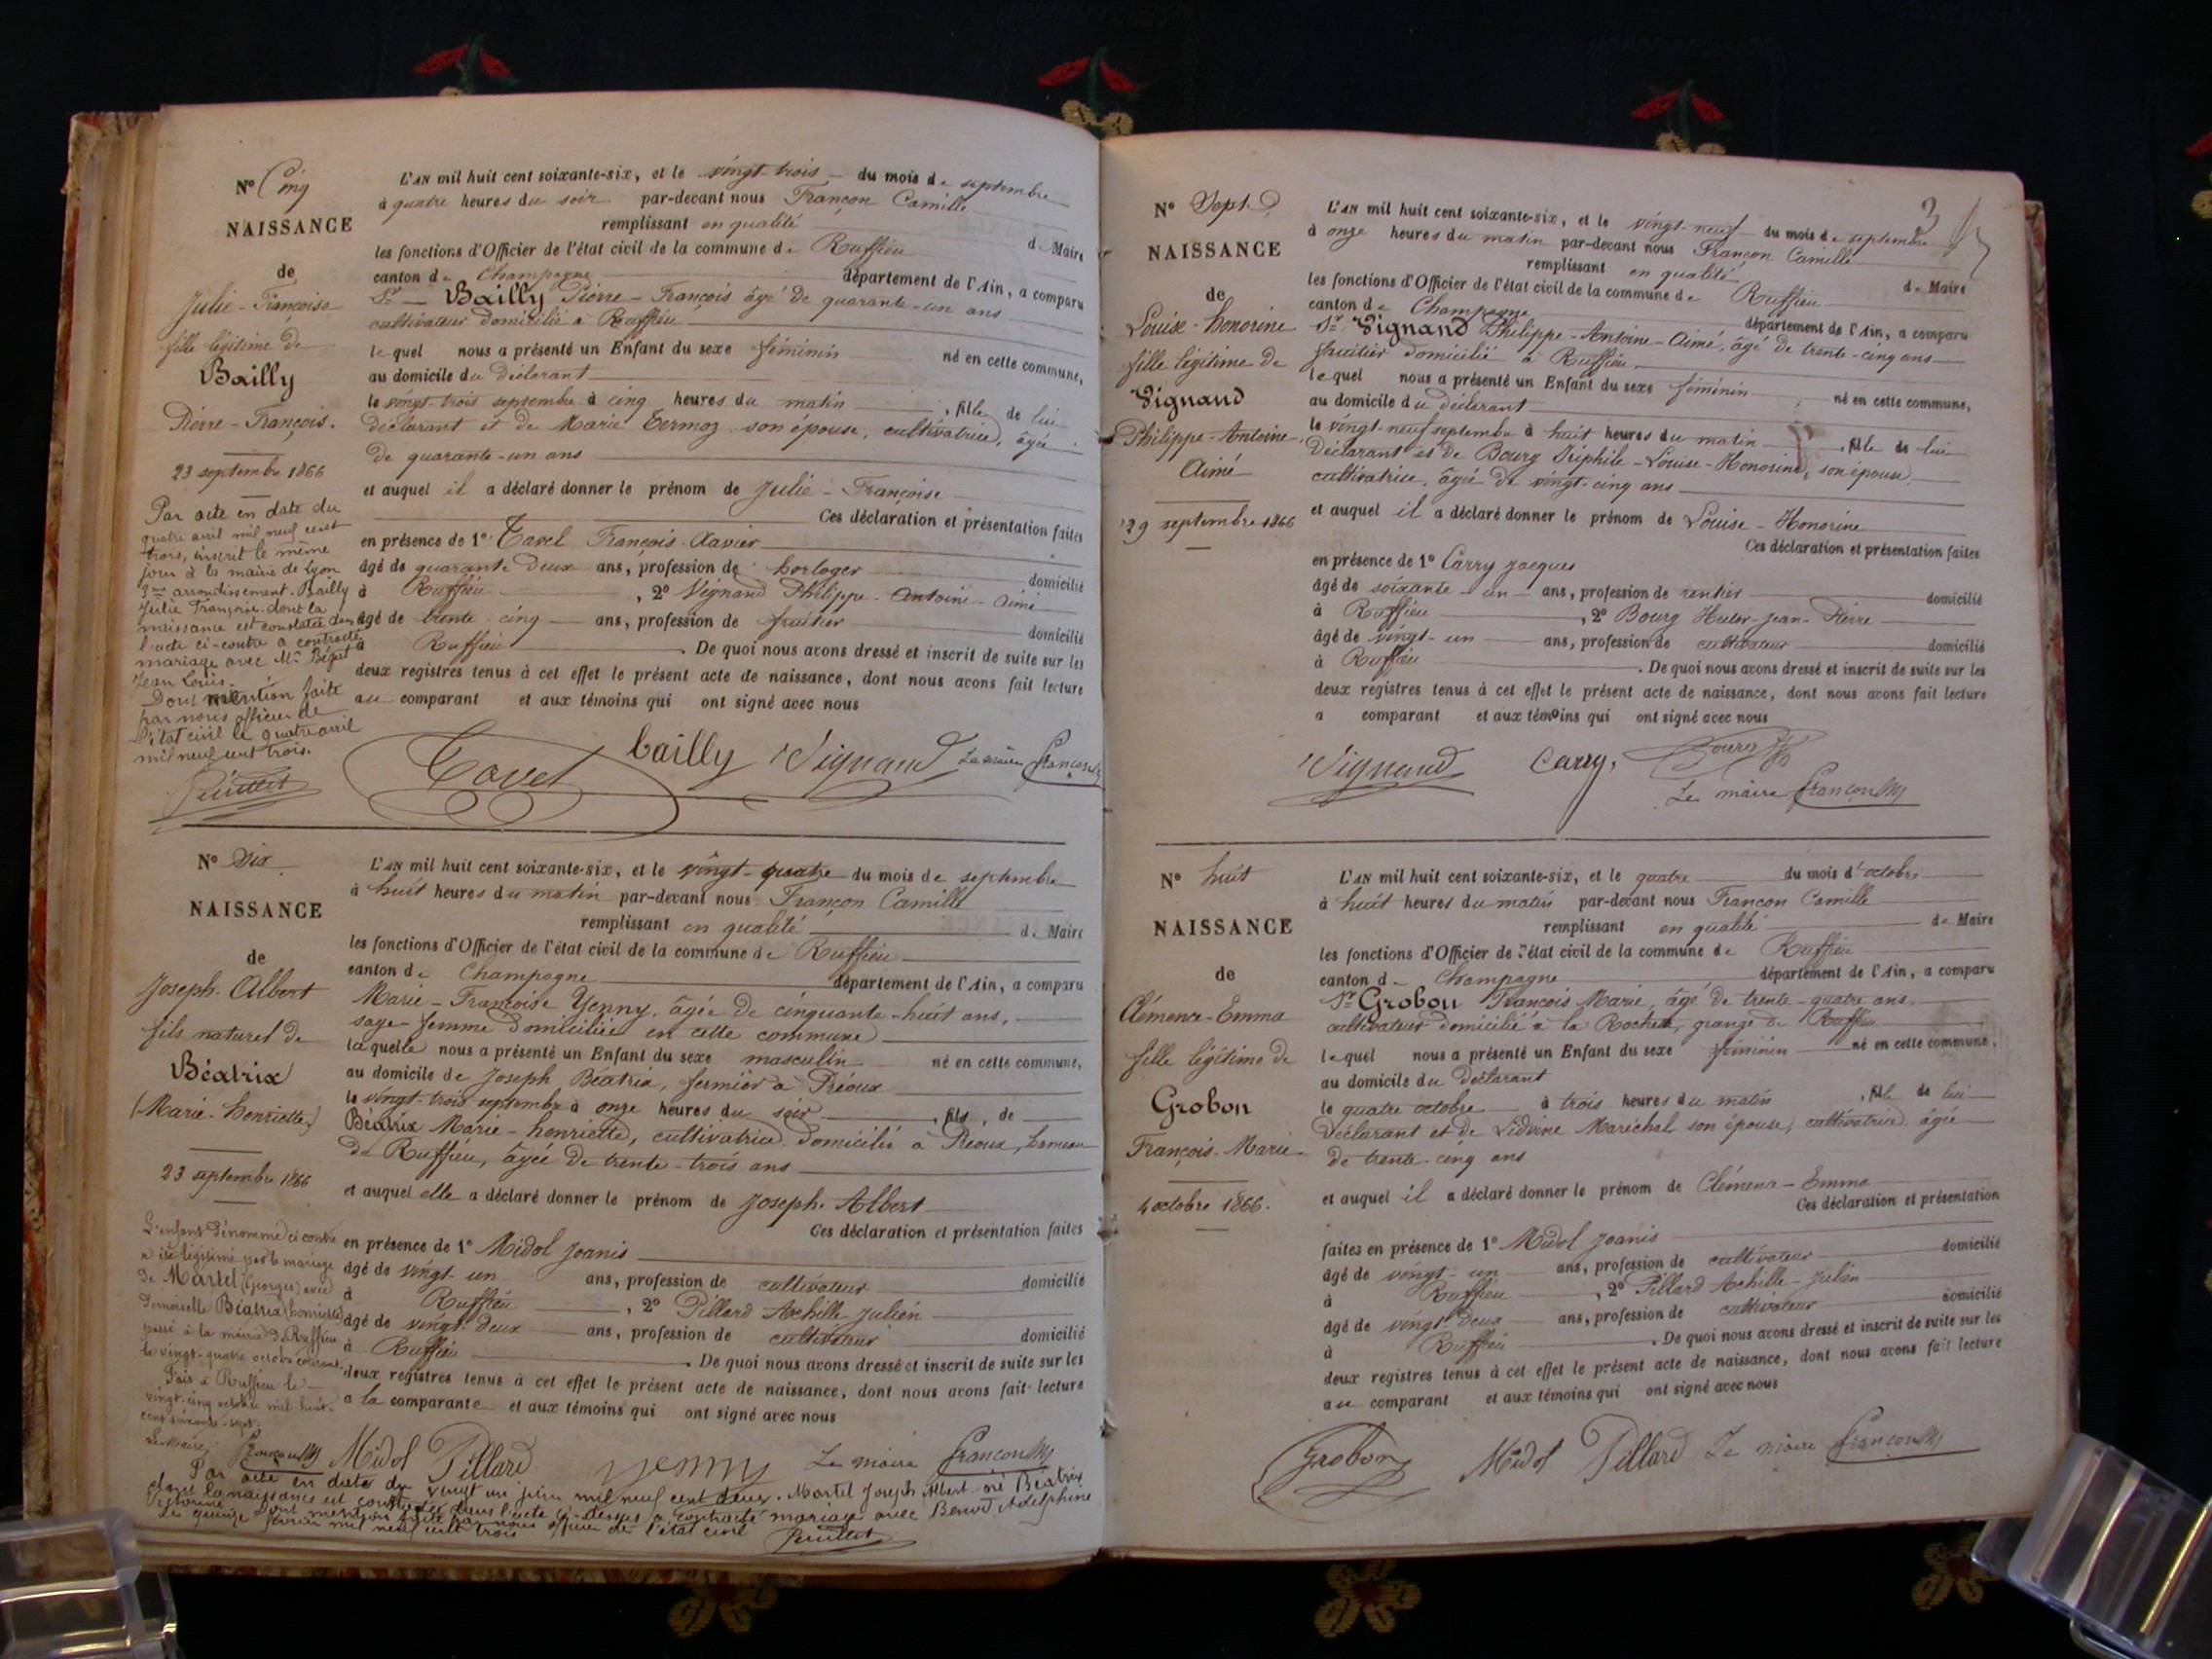 N° Cinq
NAISSANCE
de
Julie-Françoise
fille légitime de
Bailly
Pierre-François.
23 septembre 1866
Par acte en date du
quatre avril mil neuf cent
trois, inscrit le même
jour à la mairie de Lyon
3me arrondissement. Bailly
Julie Françoise dont la
naissance est constatée dans
l'acte ci-contre a contracté
mariage avec Mr
Jean Louis.
Dont mention faite
par nous officier de
l'état civil le quatre avril
mil neuf cent trois.
L'AN mil huit cent soixante-six, et le vingt-trois du mois de septembre
à quatre heures du soir par-devant nous Françon Camille
remplissant en qualité de Maire
les fonctions d'Officier de l'état civil de la commune de Ruffieu
canton de Champagne département de l'Ain, a comparu
Sr Bailly Pierre-François âgé de quarante-un ans
cultivateur domicilié à Ruffieu
lequel nous a présenté un Enfant du sexe féminin né en cette commune,
au domicile du déclarant
le vingt-trois septembre à cinq heures du matin, fille de lui
déclarant et de Marie Termoz son épouse, cultivatrice, âgée
de quarante-un ans
et auquel il a déclaré donner le prénom de Julie-Françoise
Ces déclaration et présentation faites
en présence de 1° Tavel François-Xavier
âgé de quarante deux ans, profession de horloger domicilié
à Ruffieu, 2° Vignand Philippe-Antoine-Aimé
âgé de trente-cinq ans, profession de fruitier domicilié
à Ruffieu. De quoi nous avons dressé et inscrit de suite sur les
deux registres tenus à cet effet le présent acte de naissance, dont nous avons fait lecture
au comparant et aux témoins qui ont signé avec nous
Tavel bailly Vignand Le maire Françon
N° Six
NAISSANCE
de
Joseph-Albert
fils naturel de
Béatrix
(Marie-henriette)
23 septembre 1866
L'enfant dénommé ci contre
a été légitimé par le mariage
de Martel (Georges) avec
demoiselle Béatrix (henriette)
passé à la mairie de Ruffieu
le vingt-quatre octobre courant.
Fait à Ruffieu le
vingt-cinq octobre mil huit-
cent soixante-sept.
Le Maire, Françon
L'AN mil huit cent soixante-six, et le vingt-quatre du mois de septembre
à huit heures du matin par-devant nous Françon Camille
remplissant en qualité de Maire
les fonctions d'Officier de l'état civil de la commune de Ruffieu
canton de Champagne département de l'Ain, a comparu
Marie-Françoise Yenny, âgée de cinquante-huit ans,
sage-femme domiciliée en cette commune
laquelle nous a présenté un Enfant du sexe masculin né en cette commune,
au domicile de Joseph Béatrix, fermier à Préoux
le vingt-trois septembre à onze heures du soir, fils, de
Béatrix Marie-henriette, cultivatrice domiciliée à Préoux, hameau
de Ruffieu, âgée de trente-trois ans
et auquel elle a déclaré donner le prénom de Joseph-Albert
Ces déclaration et présentation faites
en présence de 1° Midol Joanis
âgé de vingt-un ans, profession de cultivateur domicilié
à Ruffieu, 2° Pillard Achille-Julien
âgé de vingt-deux ans, profession de cultivateur domicilié
à Ruffieu. De quoi nous avons dressé et inscrit de suite sur les
deux registres tenus à cet effet le présent acte de naissance, dont nous avons fait lecture
a la comparante et aux témoins qui ont signé avec nous
Midol Pillard Yenny Le maire Françon
Par acte en date du vingt un juin mil neuf cent deux. Martel Joseph Albert né Béatrix
dont la naissance est constatée dans l'acte ci-dessus a contracté mariage avec Benoid Adelphine
Victorine Dont mention faite par nous officier de l'état civil
le quinze février mil neuf cent trois
3
N° Sept
NAISSANCE
de
Louise-honorine
fille légitime de
Vignand
Philippe-Antoine-
Aimé
29 septembre 1866
L'AN mil huit cent soixante-six, et le vingt-neuf du mois de septembre
à onze heures du matin par-devant nous Françon Camille
remplissant en qualité de Maire
les fonctions d'Officier de l'état civil de la commune de Ruffieu
canton de Champagne département de l'Ain, a comparu
Sr Vignand Philippe-Antoine-Aimé, âgé de trente-cinq ans
fruitier domicilié à Ruffieu
lequel nous a présenté un Enfant du sexe féminin né en cette commune,
au domicile du déclarant
le vingt-neuf septembre à huit heures du matin, fille de lui
déclarant et de Bourg Triphile-Louise-Honorine, son épouse,
cultivatrice, âgée de vingt-cinq ans
et auquel il a déclaré donner le prénom de Louise-Honorine
Ces déclaration et présentation faites
en présence de 1° Carry Jacques
âgé de soixante-un ans, profession de rentier domicilié
à Ruffieu, 2° Bourg -Jean-Pierre
âgé de vingt-un ans, profession de cultivateur domicilié
à Ruffieu. De quoi nous avons dressé et inscrit de suite sur les
deux registres tenus à cet effet le présent acte de naissance, dont nous avons fait lecture
a comparant et aux témoins qui ont signé avec nous
Vignand Carry, Bourg
Le maire Françon
N° huit
NAISSANCE
de
Clémence-Emma
fille légitime de
Grobon
François-Marie
4 octobre 1866.
L'AN mil huit cent soixante-six, et le quatre du mois d'octobre
à huit heures du matin par-devant nous Françon Camille
remplissant en qualité de Maire
les fonctions d'Officier de l'état civil de la commune de Ruffieu
canton de Champagne département de l'Ain, a comparu
Sr Grobon François Marie, âgé de trente-quatre ans
cultivateur domicilié à la Rochette, grange de Ruffieu
lequel nous a présenté un Enfant du sexe féminin né en cette commune,
au domicile du déclarant
le quatre octobre à trois heures du matin, fille de lui
déclarant et de Lidvine Maréchal son épouse, cultivatrice âgée
de trente-cinq ans
et auquel il a déclaré donner le prénom de Clémence-Emma
Ces déclaration et présentation
faites en présence de 1° Midol Joanis
âgé de vingt-un ans, profession de cultivateur domicilié
à Ruffieu, 2° Pillard Achille-Julien
âgé de vingt-deux ans, profession de cultivateur domicilié
à Ruffieu. De quoi nous avons dressé et inscrit de suite sur les
deux registres tenus à cet effet le présent acte de naissance, dont nous avons fait lecture
au comparant et aux témoins qui ont signé avec nous
Grobon Midol Pillard Le maire Françon